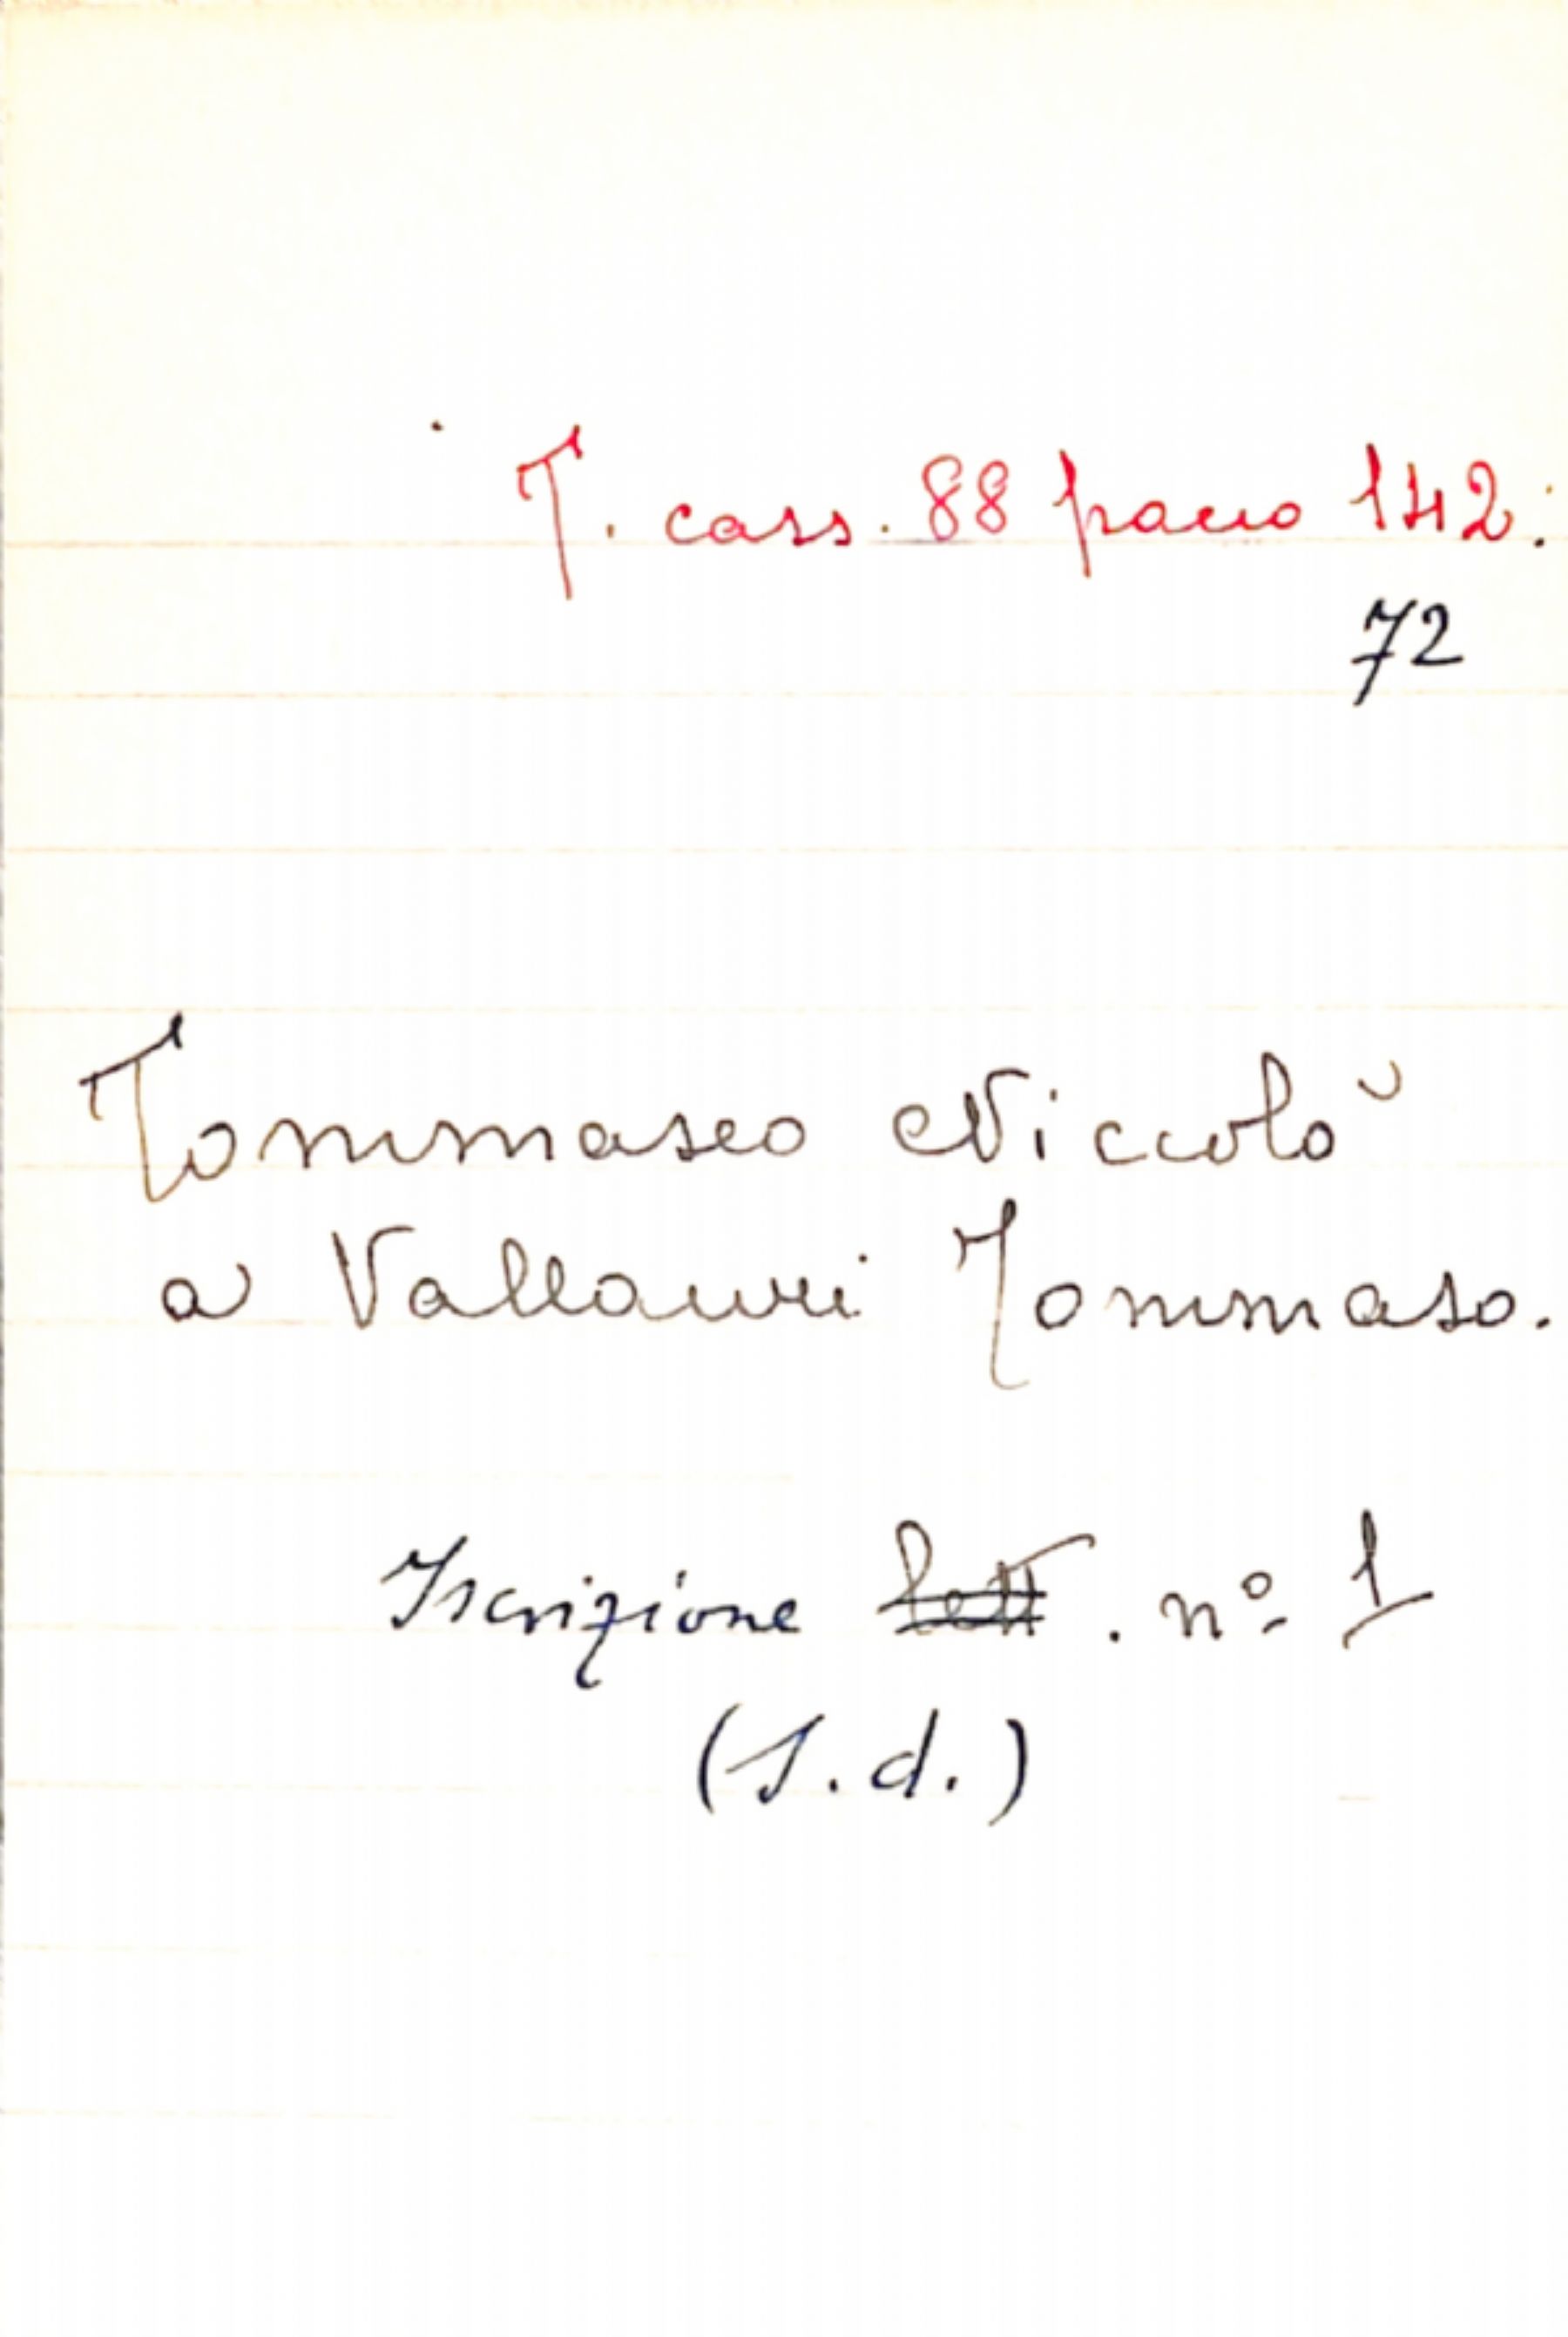 T. cass. 88 pacco 142.
72
Tommaseo Niccolò
a Vallauri Tommaso.
Iscrizione lett. nº 1
(S.d.)